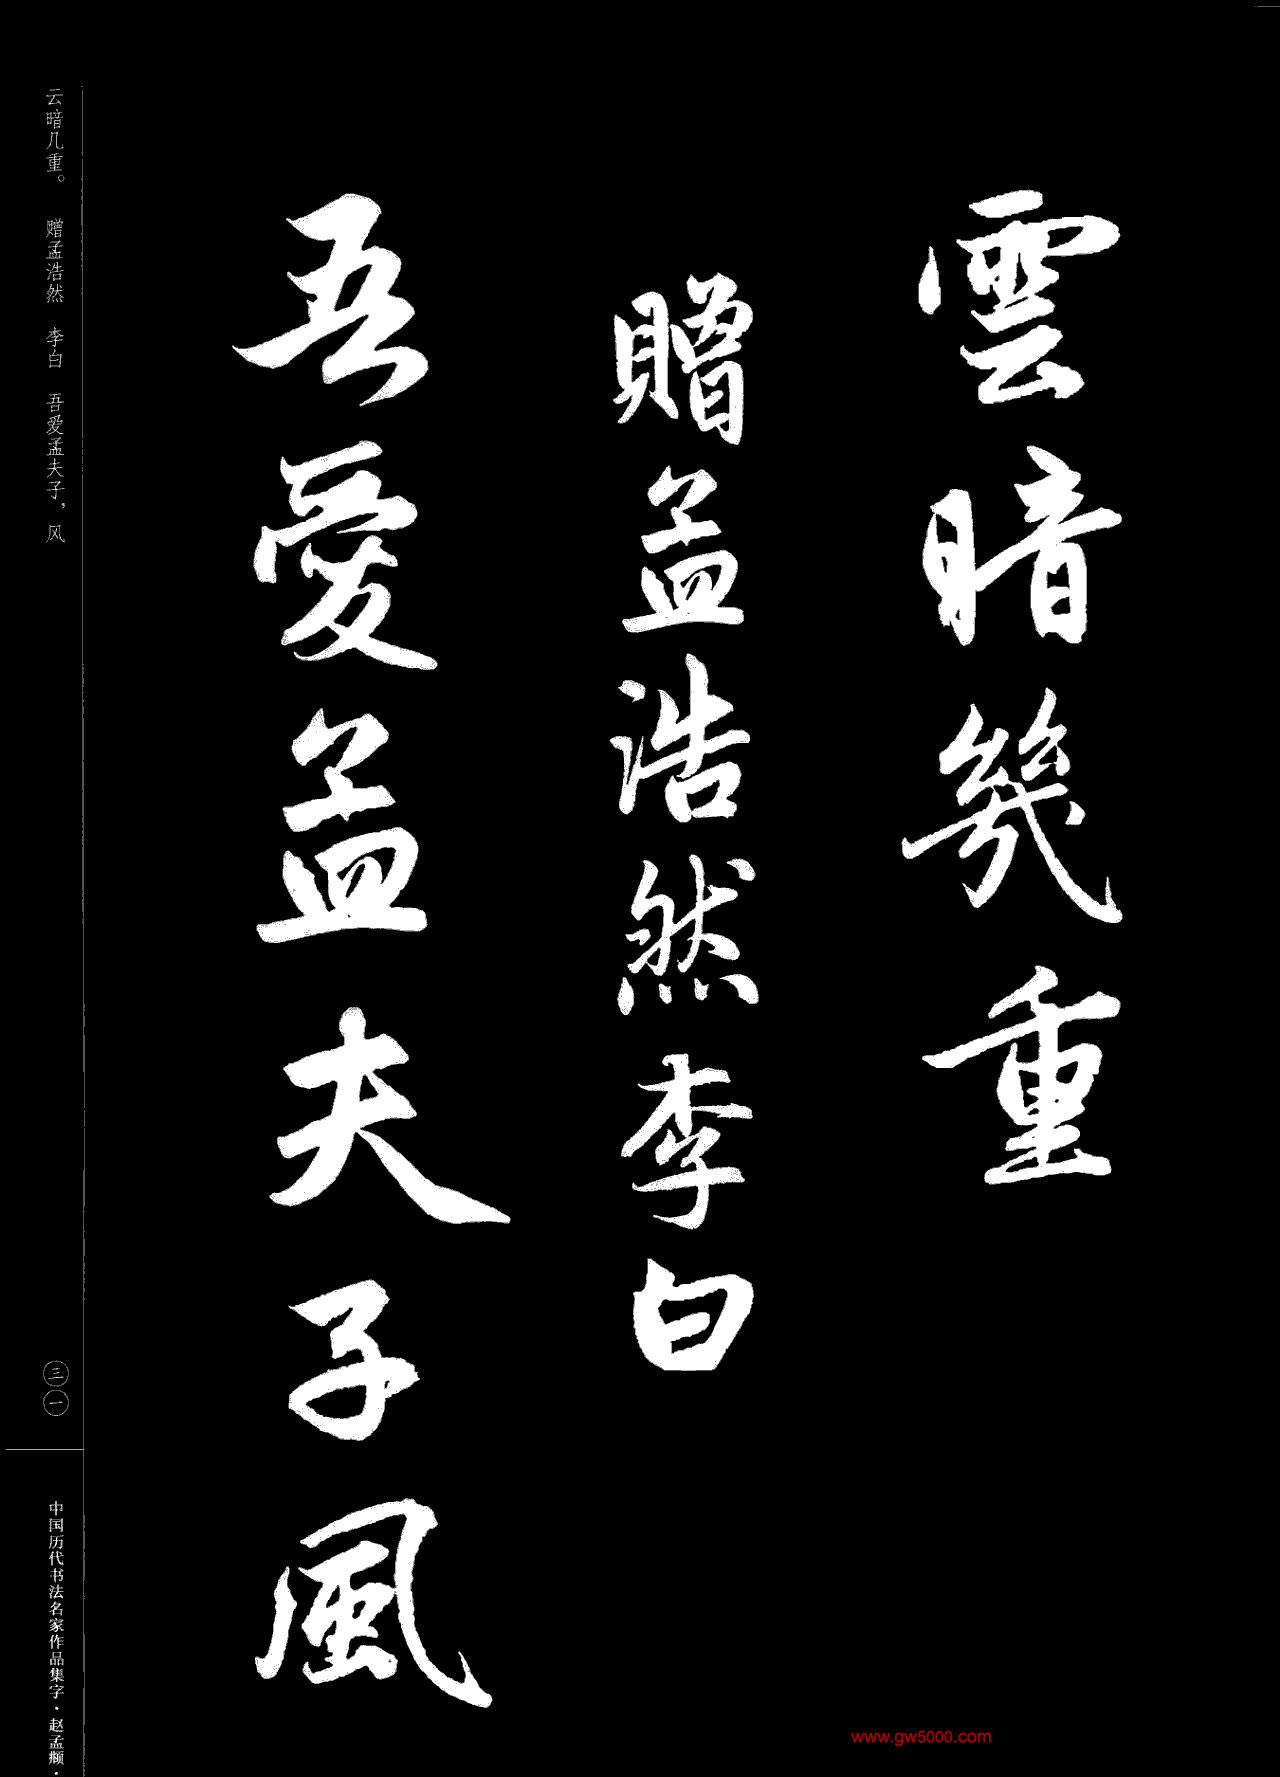 雲暗幾重
贈孟浩然李白
吾愛孟夫子風
云暗几重。 赠孟浩然 李白 吾爱孟夫子，风
三一
中国历代书法名家作品集字·赵孟頫·
www.gw5000.com